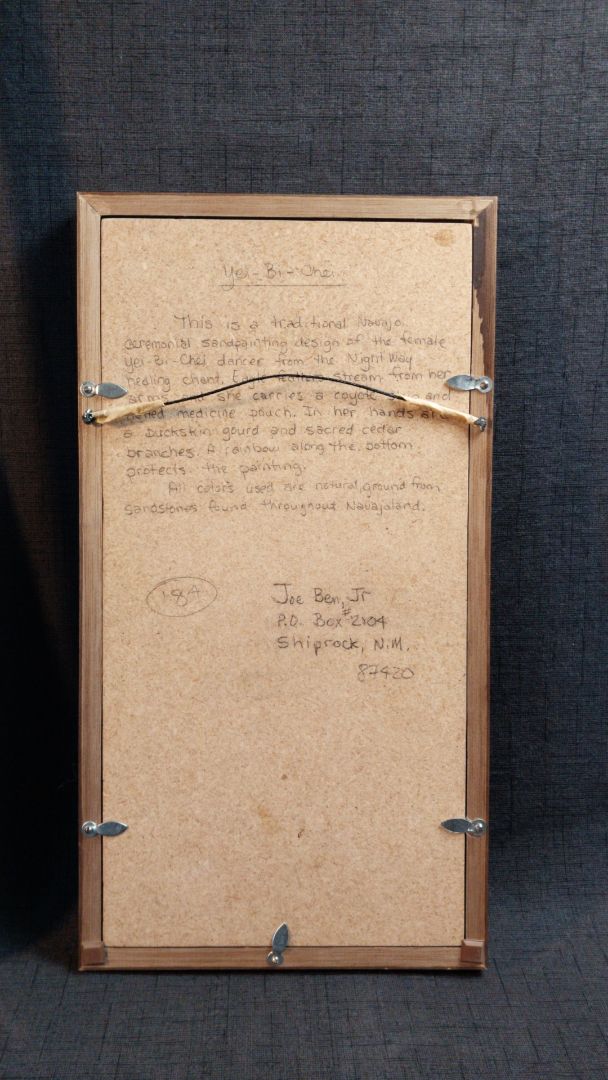 Yei-Bi-Chei
This is a traditional Navajo
ceremonial sandpainting design of the female
Yei-Bi-Chei dancer from the Night Way
healing chant. stream from her
arms and she carries a coyote and
medicine pouch. In her hands are
a buckskin gourd and sacred cedar
branches. A rainbow along the bottom
protects the painting.
All colors used are natural, ground from
sandstones found throughout Navajoland.
Joe Ben, Jr
P.O. Box #2104
Shiprock, N.M.
87420